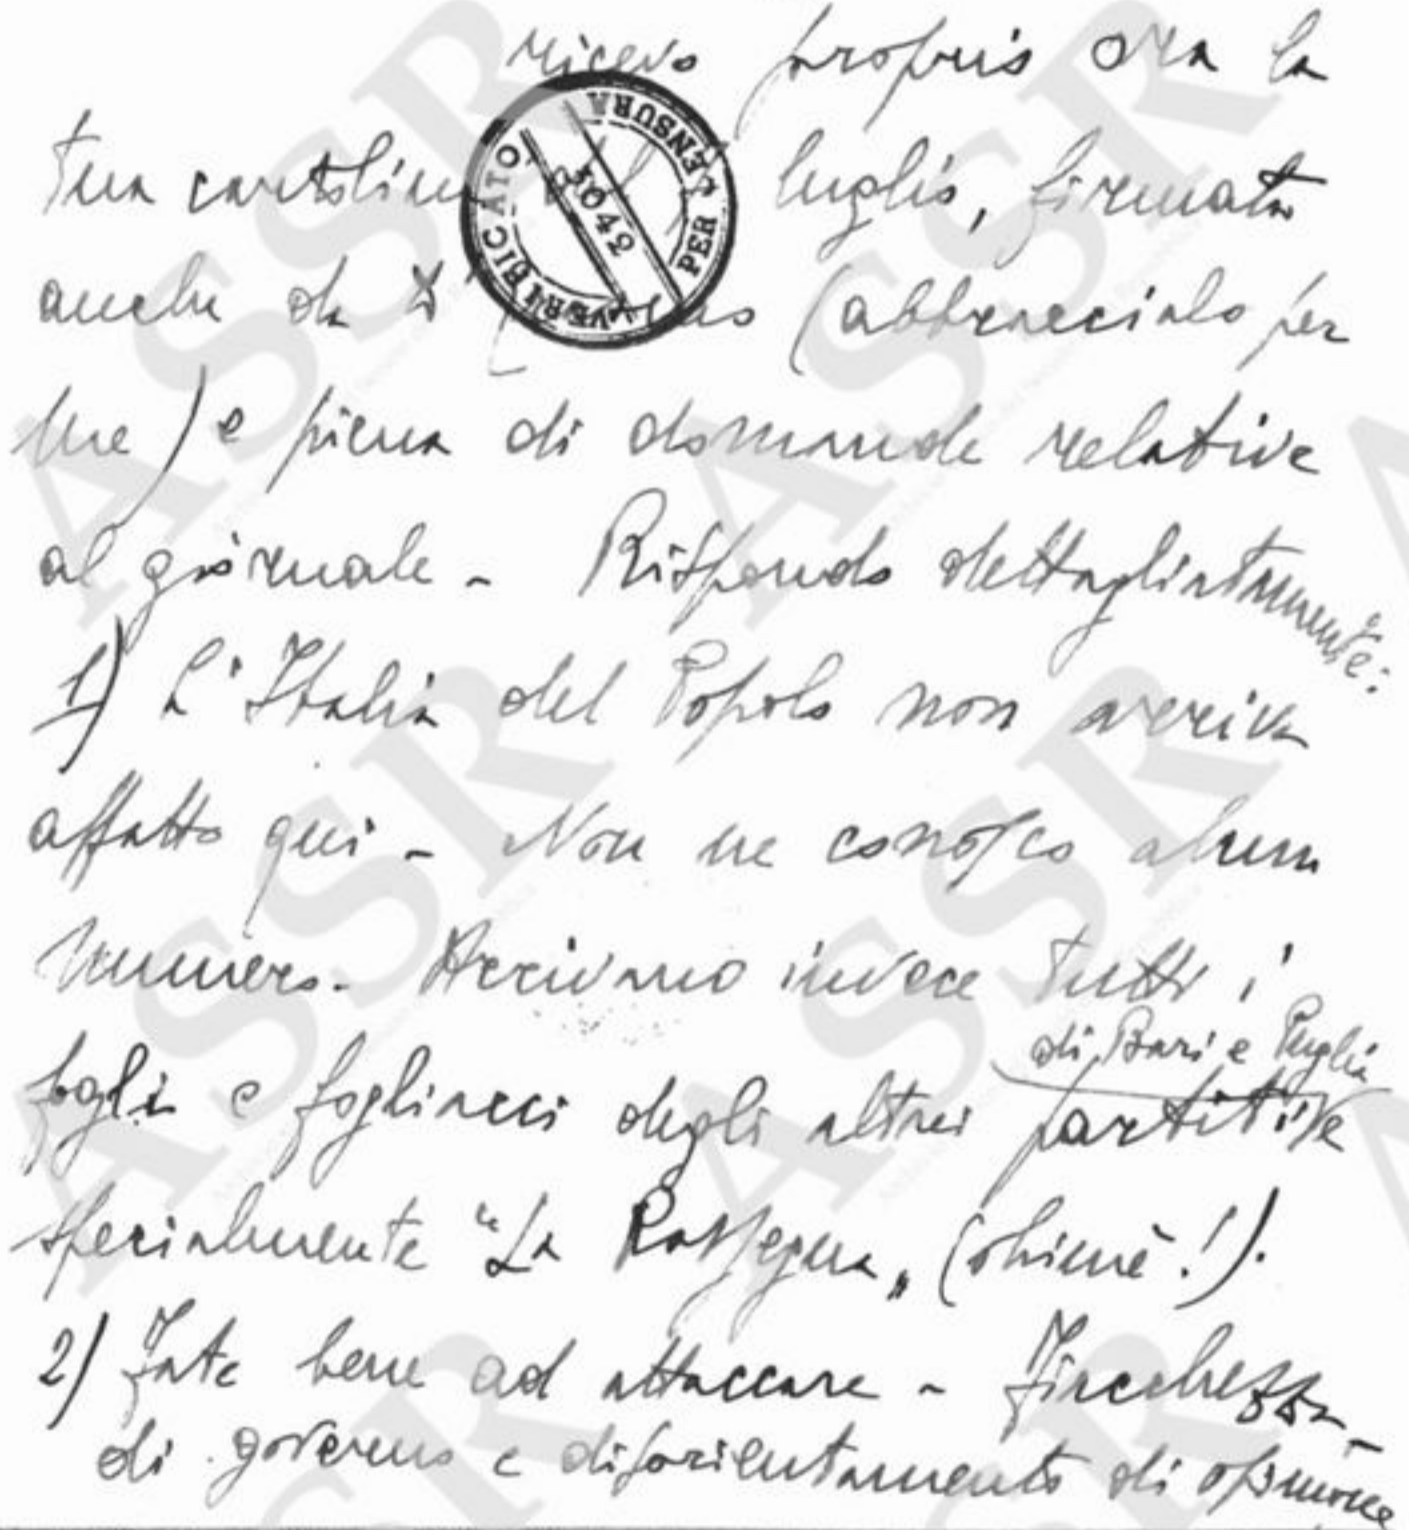 ricevo proprio ora la
tua cartolina luglio, firmata
anche da (abbraccialo per
me) e piena di domande relative
al giornale - Rispondo dettagliatamente:
1) L'Italia del Popolo non arriva
affatto qui - Non ne conosco alcun
numero. Arrivano invece tutti i
di Bari e Puglia
fogli e fogliacci degli altri partiti e
specialmente "La Rassegna" (ohimè!).
2) Fate bene ad attaccare - Fiacchezza
di governo e disorientamento di opinione
VERIFICATO PER CENSURA
ASSR